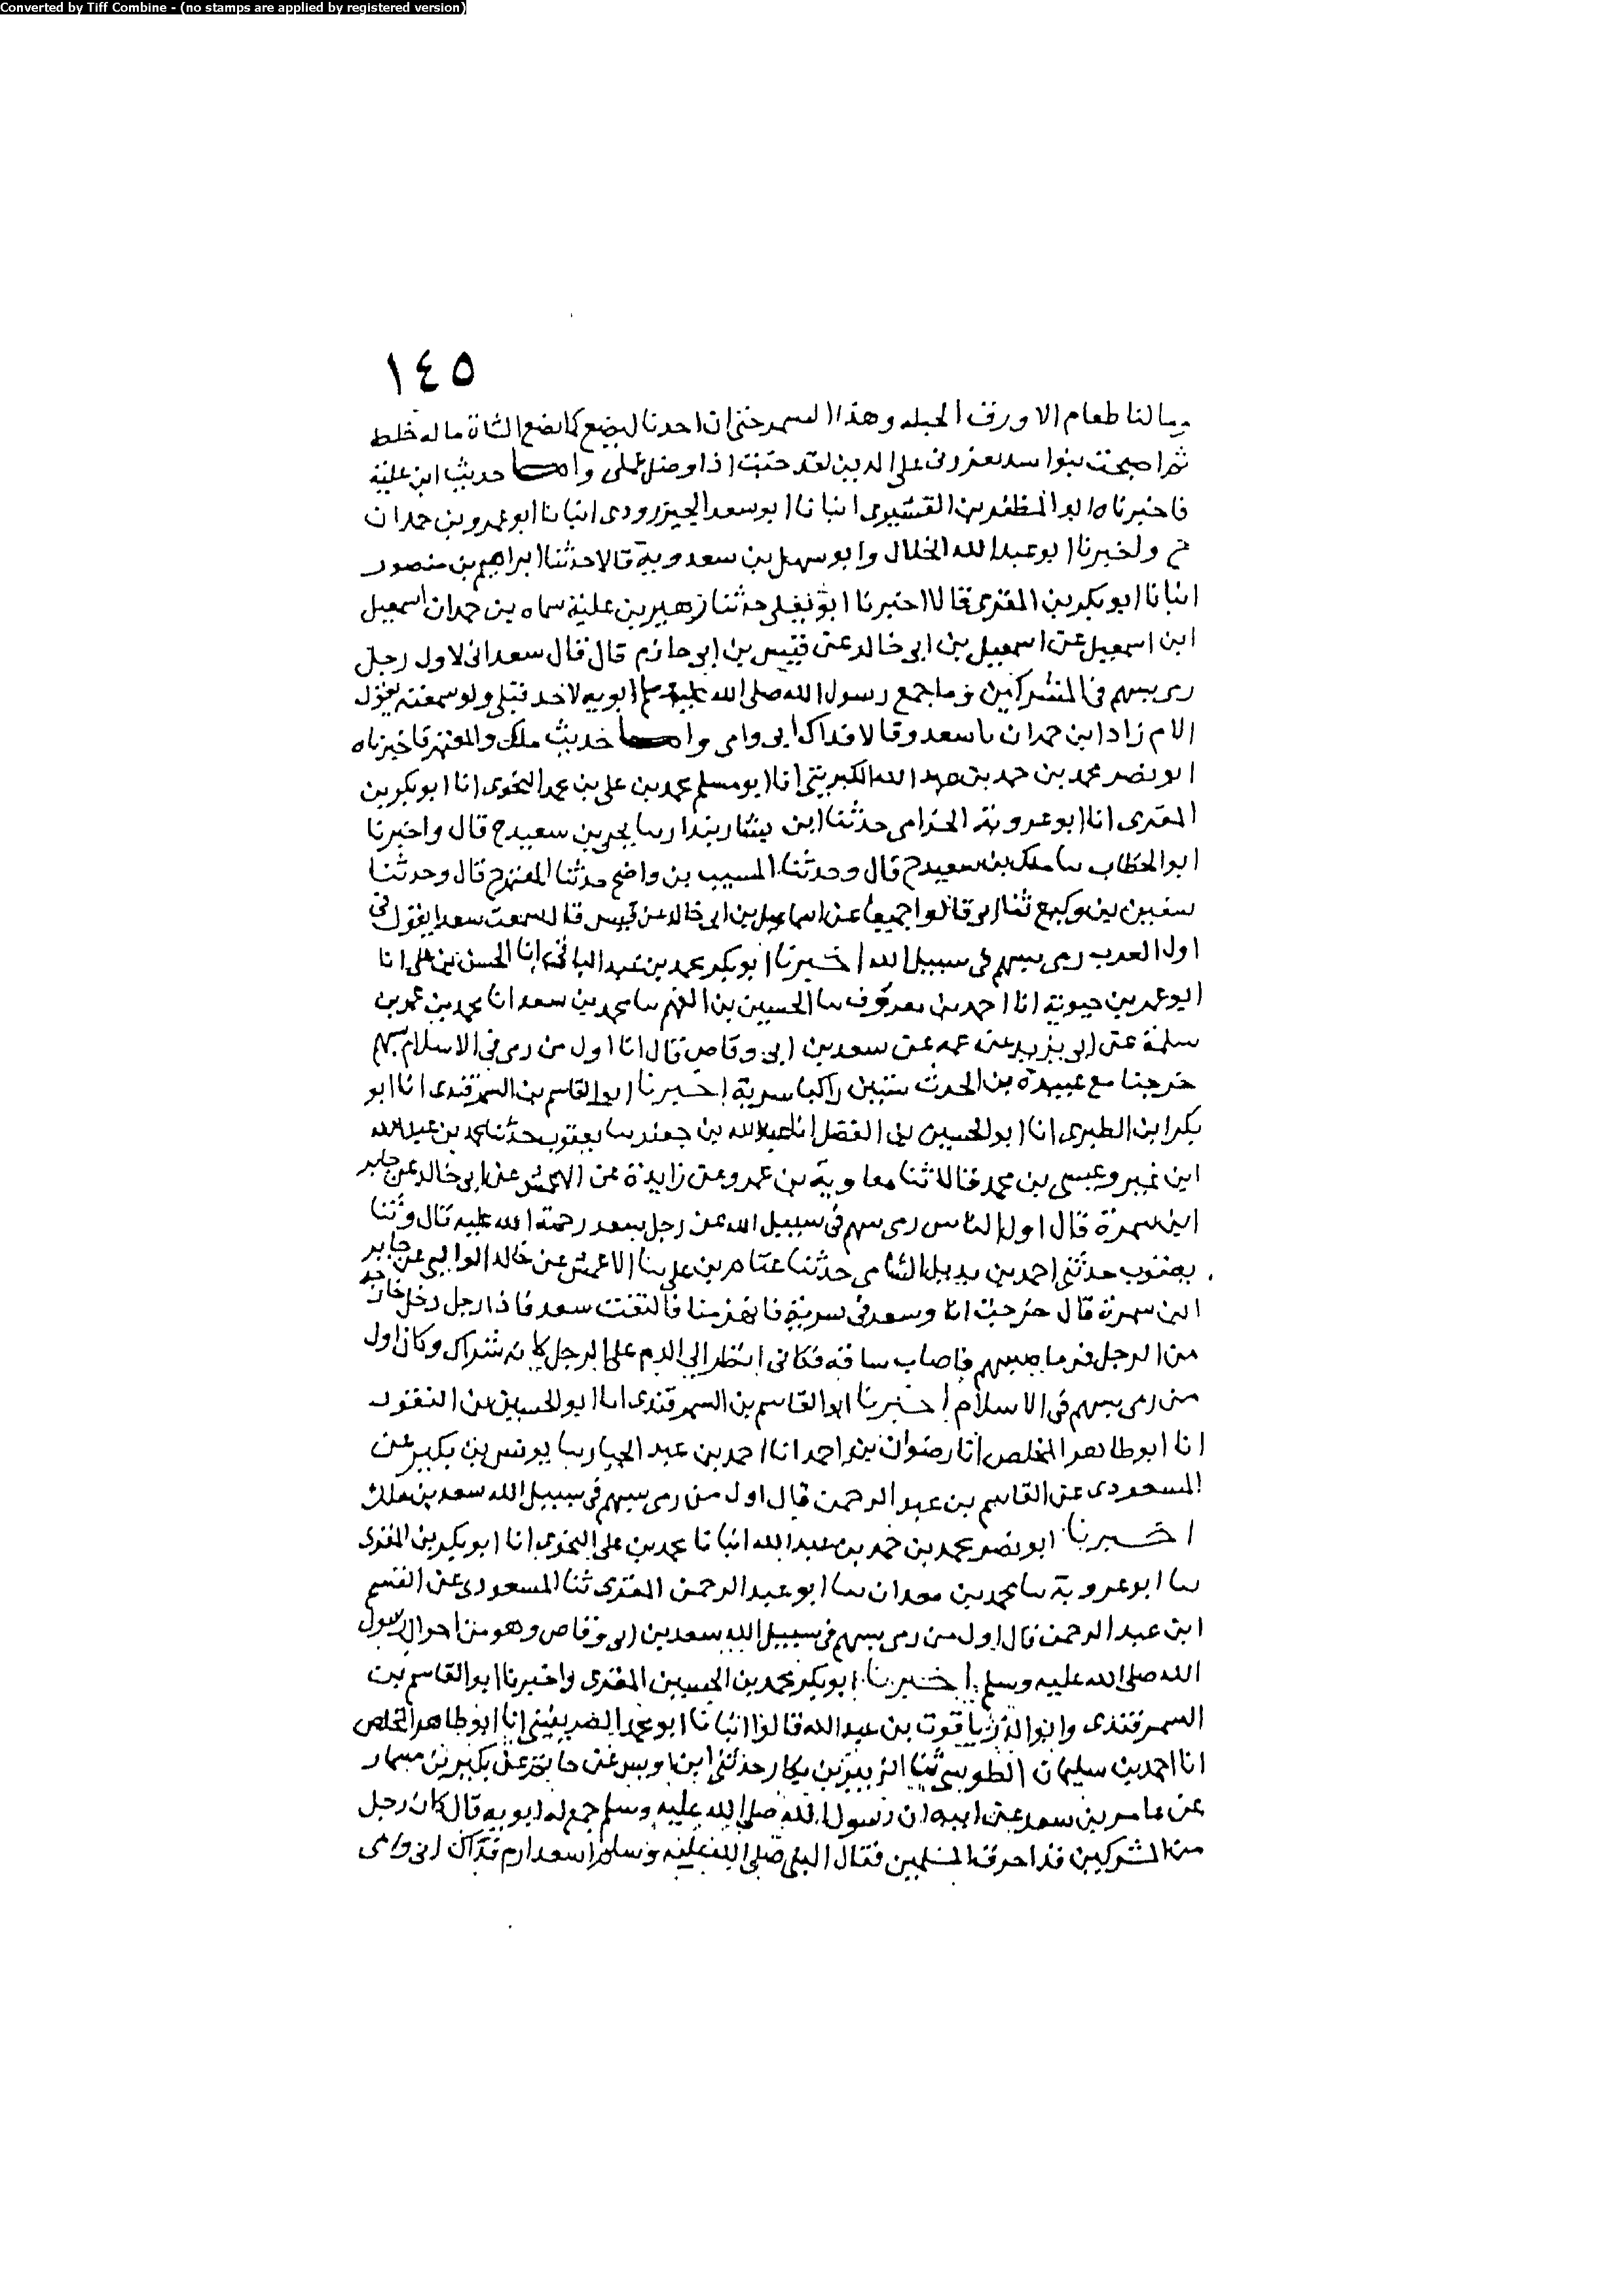 Converted by Tiff Combine - (no stamps are applied by registered version)
١٤٥
وما لنا طعام الا ورق الحبله وهذا السمر حتى ان احدنا ليضع كما تضع الشاة ما له خلط
ثم اصبحت بنوا سد يعزرونى على الدين لقد خبت اذا وضل عملى واما حديث ابن علية
فاخبرناه ابو المظفر بن القشيرى انبانا ابو سعد الجنزرودى انبانا ابو عمرو بن حمدان
ح واخبرنا ابو عبد الله الخلال وابو سهل بن سعدويه قالا حدثنا ابراهيم بن منصور
انبانا ابو بكر بن المقرى قالا اخبرنا ابو يعلى حدثنا زهير بن علية سماه بن حمدان اسمعيل
ابن اسمعيل عن اسمعيل بن ابى خالد عن قيس بن ابى حازم قال قال سعد انى لاول رجل
رمى بسهم فى المشركين وما جمع رسول الله صلى الله عليه وسلم ابويه لاحد قبلى ولو سمعته يقول
الام زاد ابن حمدان يا سعد وقالا فداك ابى وامى واما حديث ملك والمعتمر فاخبرناه
ابو نصر محمد بن حمد بن عبد الله الكبريتى انا ابو مسلم محمد بن على بن محمد النحوى انا ابو بكر بن
المقرى انا ابو عروبة الحرامى حدثنا ابن بشار بندار نا يحيى بن سعيد ح قال واخبرنا
ابو الخطاب نا ملك بن سعيد ح قال وحدثنا المسيب بن واضح حدثنا المعتمر ح قال وحدثنا
سفين بن وكيع ثنا ابى قالوا جميعا عن اسماعيل بن ابى خالد عن قيس قال سمعت سعدا يقول انى
اول العرب رمى بسهم فى سبيل الله اخبرنا ابو بكر محمد بن عبد الباقى انا الحسن بن على انا
ابو عمر بن حيوية انا احمد بن معروف نا الحسين بن الفهم نا محمد بن سعد انا محمد بن عمر بن
سلمة عن ابى يزيد عن عمه عن سعد بن ابى وقاص قال انا اول من رمى فى الاسلام بسهم
خرجنا مع عبيدة بن الحرث ستين راكبا سرية اخبرنا ابو القاسم بن السمرقندى انا ابو
بكر ابن الطبرى انا ابو الحسين بن الفضل انا عبد الله بن جعفر نا يعقوب حدثنا محمد بن عبد الله
ابن نمير وعيسى بن محمد قالا ثنا معاوية بن عمرو عن زايدة عن الاعمش عن ابى خالد عن جابر
ابن سمرة قال اول الناس رمى بسهم فى سبيل الله عن رجل سعد رحمة الله عليه قال وثنا
يعقوب حدثنى احمد بن بديل الشامى حدثنا عثام بن على نا الاعمش عن خالد الوالبى عن جابر
ابن سمرة قال خرجت انا وسعد فى سرية فانهزمنا فالتفت سعد فاذا رجل رجل خارجه
من الرجل فرماه بسهم فاصاب ساقه فكانى انظر الى الدم على الرجل كانه شراك وكان اول
من رمى بسهم فى الاسلام اخبرنا ابو القاسم بن السمرقندى انا ابو الحسين بن النقور
انا ابو طاهر المخلص انا رضوان بن احمد انا احمد بن عبد الجبار نا يونس بن بكير عن
المسعودى عن القاسم بن عبد الرحمن قال اول من رمى بسهم فى سبيل الله سعد بن ملك
اخبرنا ابو نصر محمد بن حمد بن عبد الله انبانا محمد بن على النحوى انا ابو بكر بن المقرى
نا ابو عروبة نا محمد بن معدان نا ابو عبد الرحمن المقرى ثنا المسعودى عن القسم
ابن عبد الرحمن قال اول من رمى بسهم فى سبيل الله سعد بن ابى وقاص وهو من اخوال رسول
الله صلى الله عليه وسلم اخبرنا ابو بكر محمد بن الحسين المقرى واخبرنا ابو القاسم بن
السمرقندى وابو الدر ياقوت بن عبد الله قالوا انبانا ابو محمد الصريفينى انا ابو طاهر المخلص
انا احمد بن سليمان الطوسى ثنا الزبير بن بكار حدثنى ابن اويس عن حاتم عن بكير بن مسمار
عن عامر بن سعد عن ابيه ان رسول الله صلى الله عليه وسلم جمع له ابويه قال كان رجل
من المشركين قد احرق المسلمين فقال النبى صلى الله عليه وسلم يا سعد ارم فداك ابى وامى